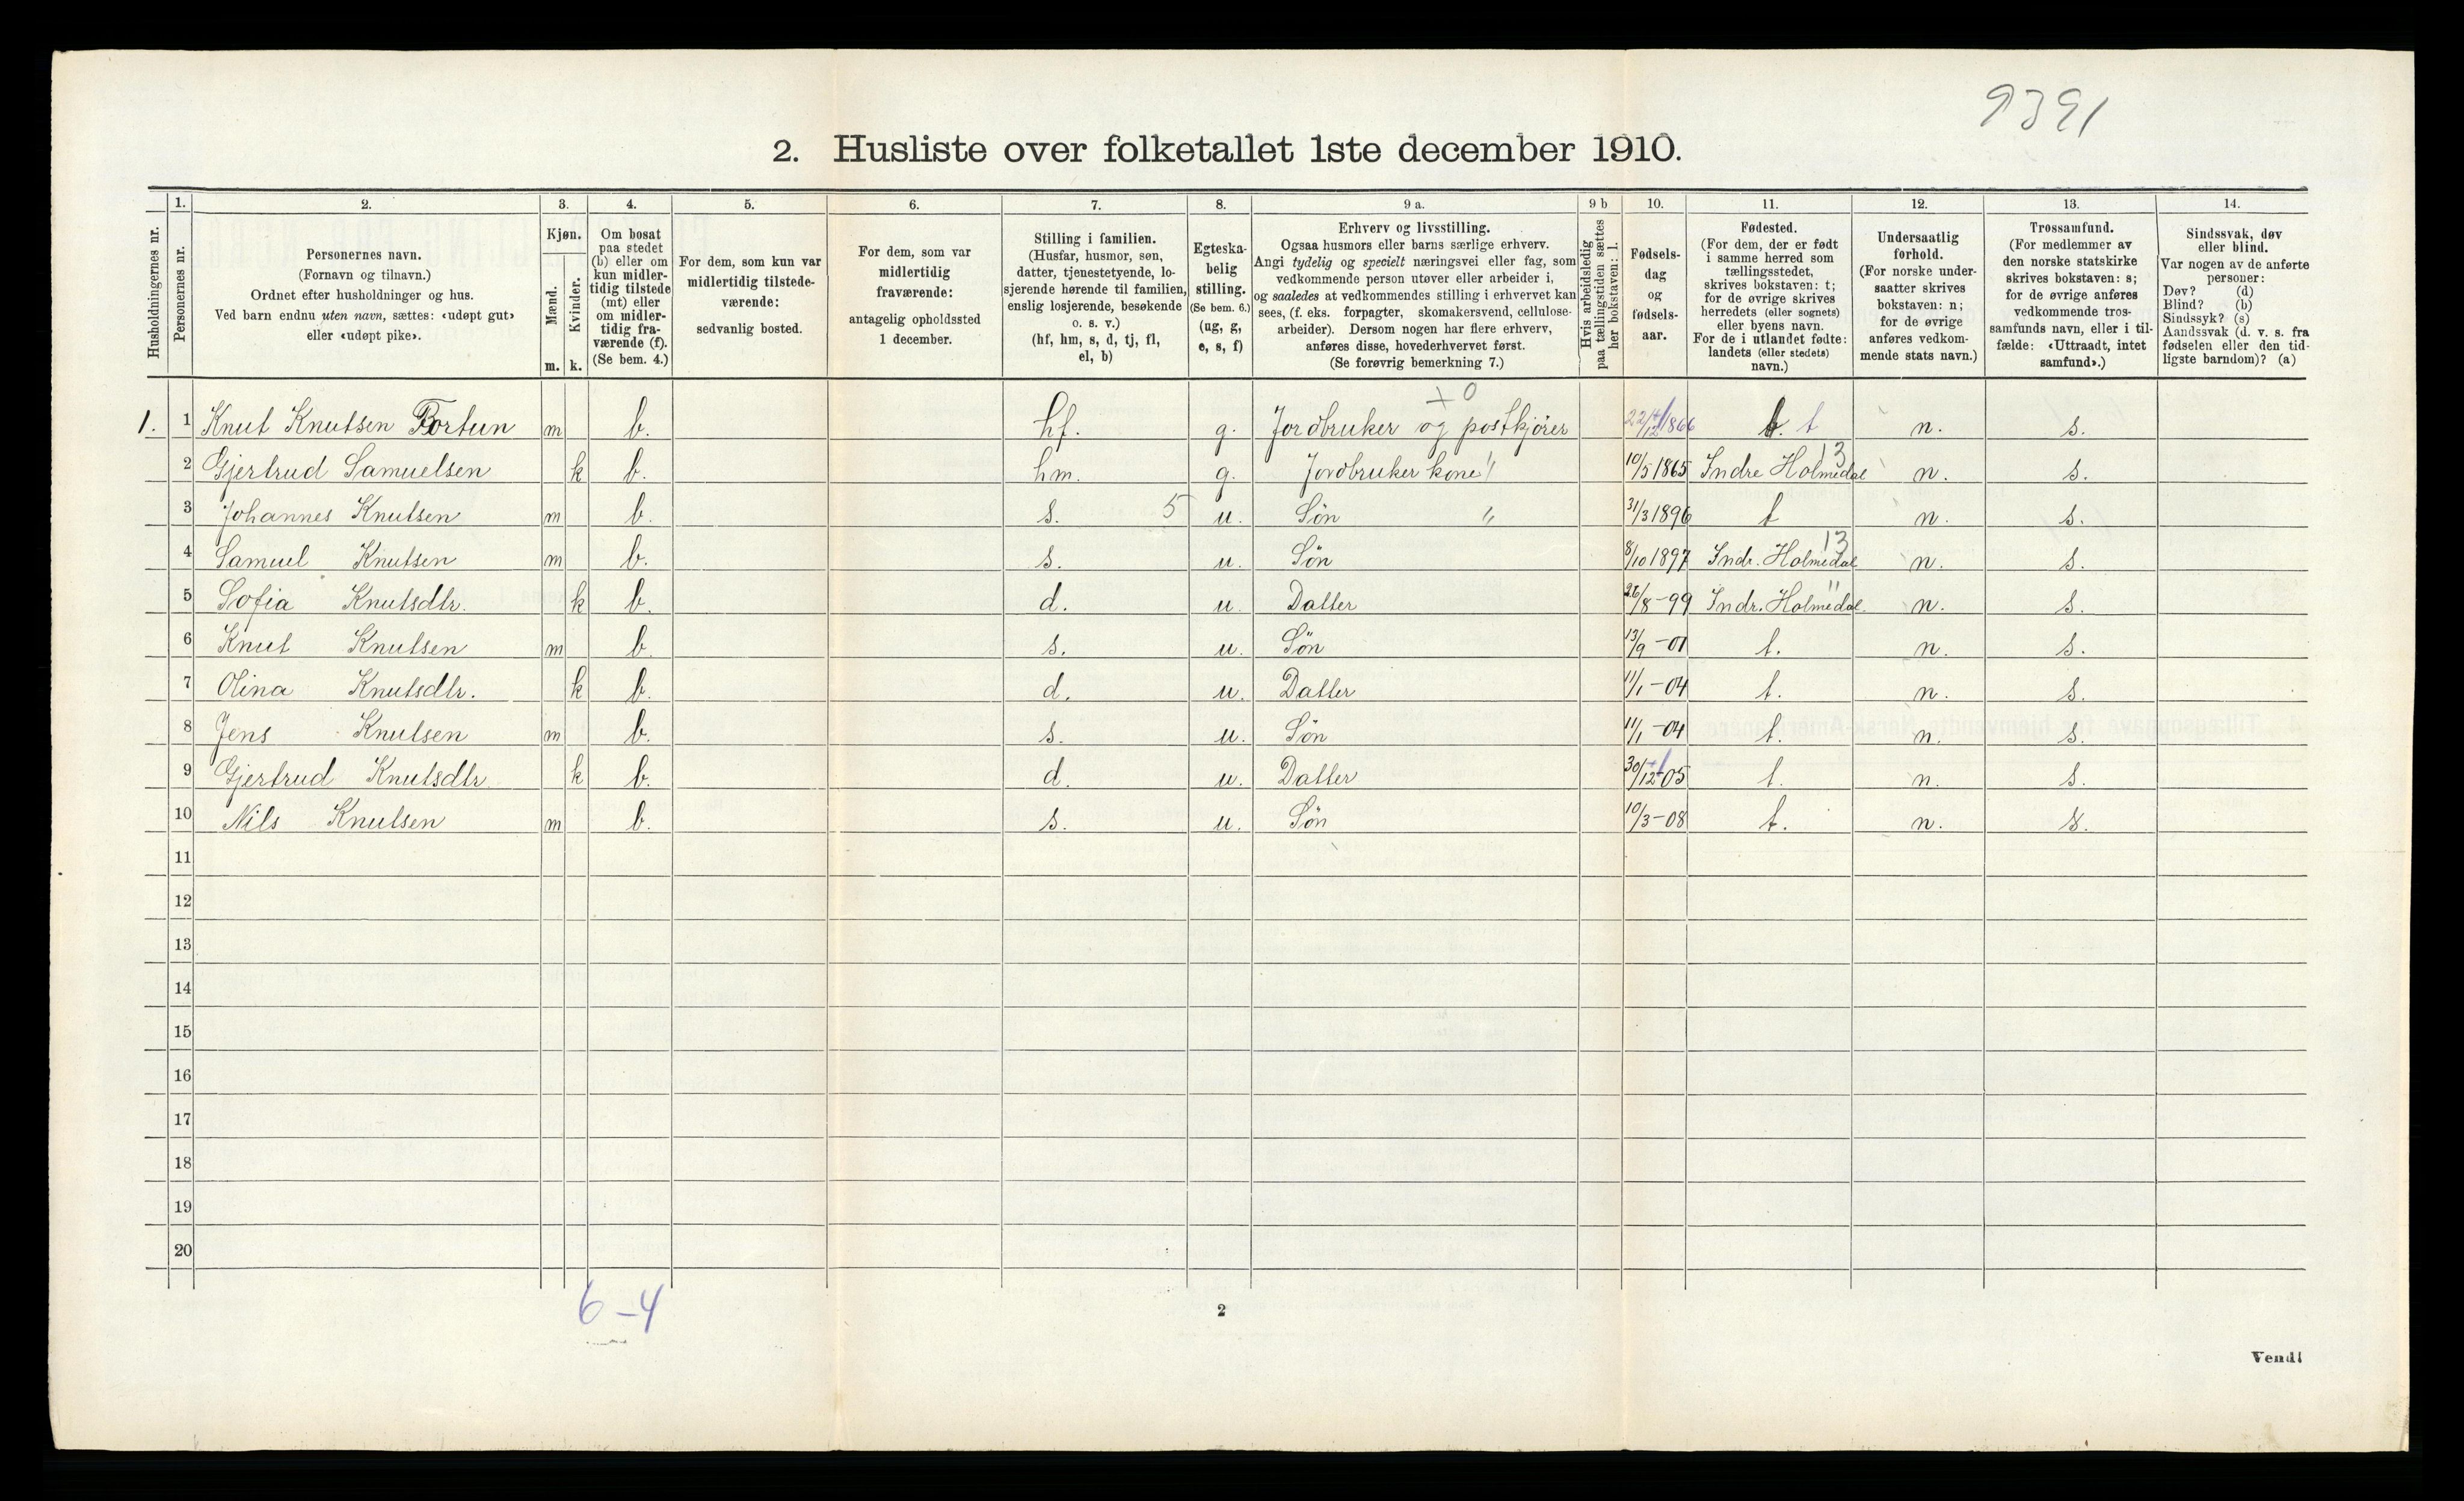 9391
2. Husliste over folketallet 1ste december 1910.
Husholdningernes nr.
1.
Personernes nr.
2.
Personernes navn.
(Fornavn og tilnavn.)
Ordnet efter husholdninger og hus.
Ved barn endnu uten navn, sættes: «udøpt gut»
eller «udøpt pike».
3.
Kjøn.
Mænd.
Kvinder.
m. k.
4.
Om bosat
paa stedet
(b) eller om
kun midler-
tidig tilstede
(mt) eller
om midler-
tidig fra-
værende (f).
(Se bem. 4.)
5.
For dem, som kun var
midlertidig tilstede-
værende:
sedvanlig bosted.
6.
For dem, som var
midlertidig
fraværende:
antagelig opholdssted
1 december.
7.
Stilling i familien.
(Husfar, husmor, søn,
datter, tjenestetyende, lo-
sjerende hørende til familien,
enslig losjerende, besøkende
o. s. v.)
(hf, hm, s, d, tj, fl,
el, b)
8.
Egteska-
belig
stilling.
(Se bem. 6.)
(ug, g,
e, s, f)
9 a.
Erhverv og livsstilling.
Ogsaa husmors eller barns særlige erhverv.
Angi tydelig og specielt næringsvei eller fag, som
vedkommende person utøver eller arbeider i,
og saaledes at vedkommendes stilling i erhvervet kan
sees, (f. eks. forpagter, skomakersvend, cellulose-
arbeider). Dersom nogen har flere erhverv,
anføres disse, hovederhvervet først.
(Se forøvrig bemerkning 7.)
9 b
Hvis arbeidsledig
paa tællingstiden sættes
her bokstaven: l.
10.
Fødsels-
dag
og
fødsels-
aar.
11.
Fødested.
(For dem, der er født
i samme herred som
tællingsstedet,
skrives bokstaven: t;
for de øvrige skrives
herredets (eller sognets)
eller byens navn.
For de i utlandet fødte:
landets (eller stedets)
navn.)
12.
Undersaatlig
forhold.
(For norske under-
saatter skrives
bokstaven: n;
for de øvrige
anføres vedkom-
mende stats navn.)
13.
Trossamfund.
(For medlemmer av
den norske statskirke
skrives bokstaven: s;
for de øvrige anføres
vedkommende tros-
samfunds navn, eller i til-
fælde: «Uttraadt, intet
samfund».)
14.
Sindssvak, døv
eller blind.
Var nogen av de anførte
personer:
Døv? (d)
Blind? (b)
Sindssyk? (s)
Aandssvak (d. v. s. fra
fødselen eller den tid-
ligste barndom)? (a)
+ 0
1. 1 Knut Knutsen Fortun m b. hf. g. Jordbruker og postkjører 22/12 1866 t n. s.
2 Gjertrud Samuelsen k b. hm. g. Jordbruker kone " 10/5 1865 Indre Holmedal 13 n. s.
3 Johannes Knutsen m b. s. 5 u. Søn " 31/3 1896 t n. s.
4 Samuel Knutsen m b. s. u. Søn 8/10 1897 Indr. Holmedal 13 n. s.
5 Sofia Knutsdtr. k b. d. u. Datter 26/8-99 Indr. Holmedal " n. s.
6 Knut Knutsen m b. s. u. Søn 13/9-01 t. n. s.
7 Olina Knutsdtr. k b. d. u. Datter 11/1-04 t. n. s.
8 Jens Knutsen m b. s. u. Søn 11/1-04 t. n. s.
9 Gjertrud Knutsdtr. k b. d. u. Datter 30/12-05 t. n. s.
10 Nils Knutsen m b. s. u. Søn 10/3-08 t. n. s.
11
12
13
14
15
16
17
18
19
20
6-4
2
Vend!